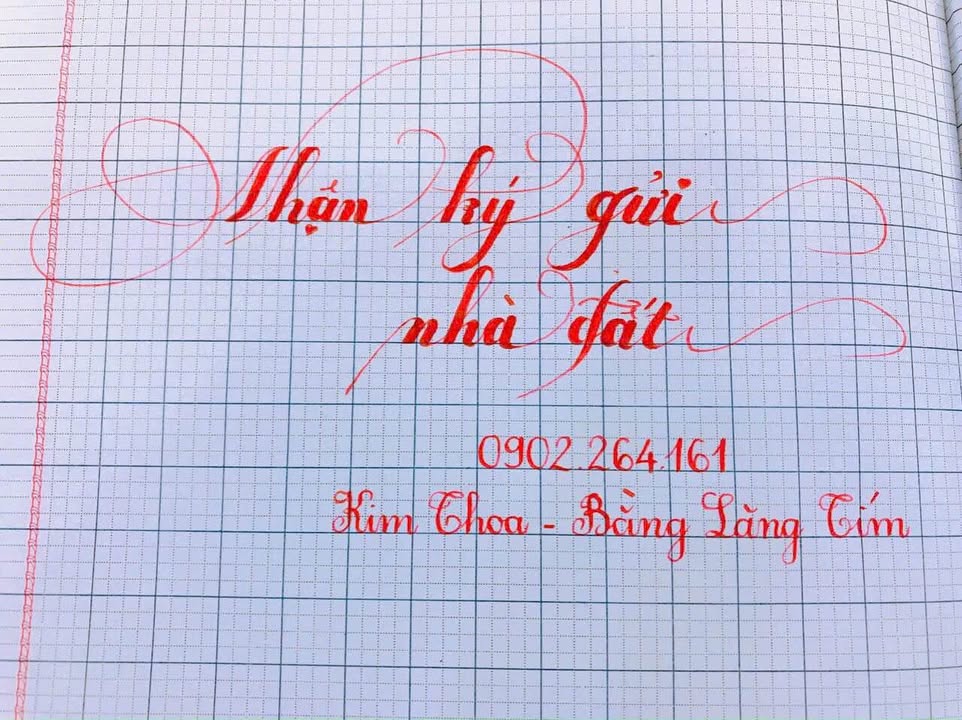 Nhận ký gửi
nhà đất
0902.264.161
Kim Thoa - Bằng Lăng Tím